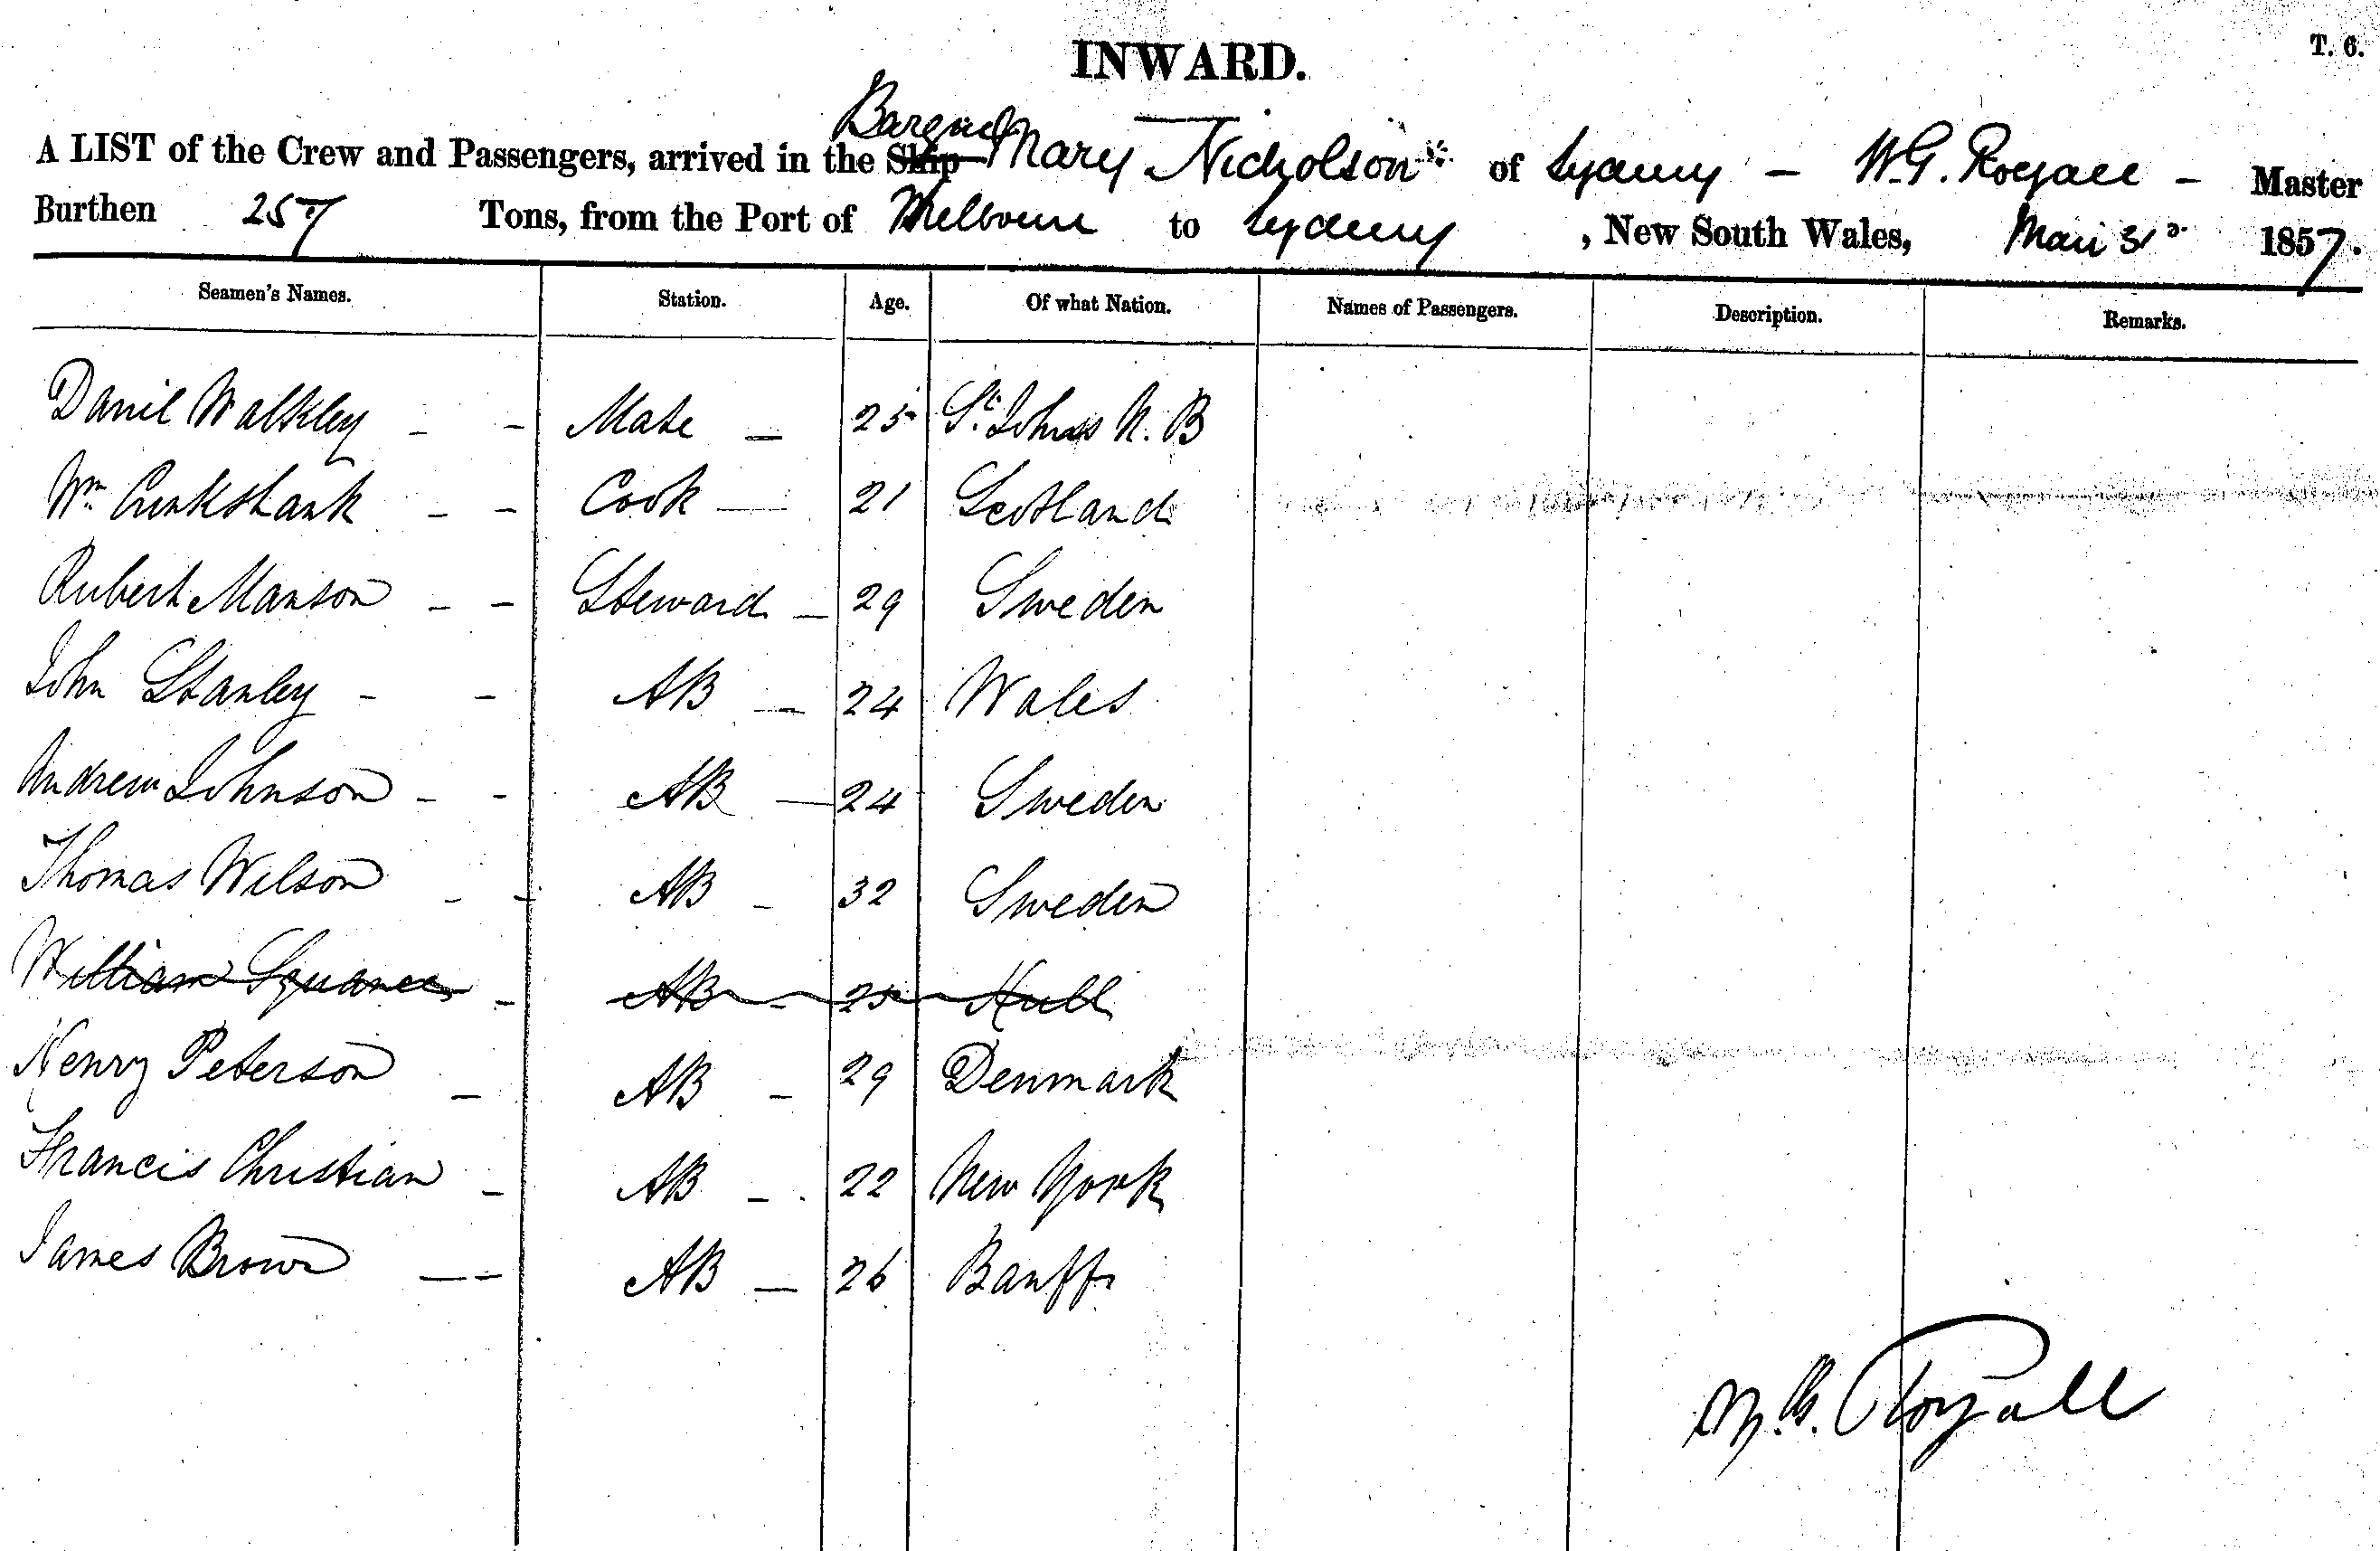 INWARD.
T. 6.
Barque
A LIST of the Crew and Passengers, arrived in the Ship Mary Nicholson of Sydney — W.G. Royall — Master
Burthen 257 Tons, from the Port of Melbourne to Sydney, New South Wales, 1857.
Seamen's Names. Station. Age. Of what Nation. Names of Passengers. Description. Remarks.
Daniel Walkley - - Mate — 25 St. Johns N. B
Wm Cruikshank - - Cook — 21 Scotland
Robert Manson - - Steward — 29 Sweden
John Stanley - - AB — 24 Wales
Andrew Johnson - - AB — 24 Sweden
Thomas Wilson - - AB - 32 Sweden
William Squance - AB - 25 Hull
Henry Peterson - AB - 29 Denmark
Francis Christian - AB - 22 New York
James Brown — - AB — 26 Banff
W. G. Royall